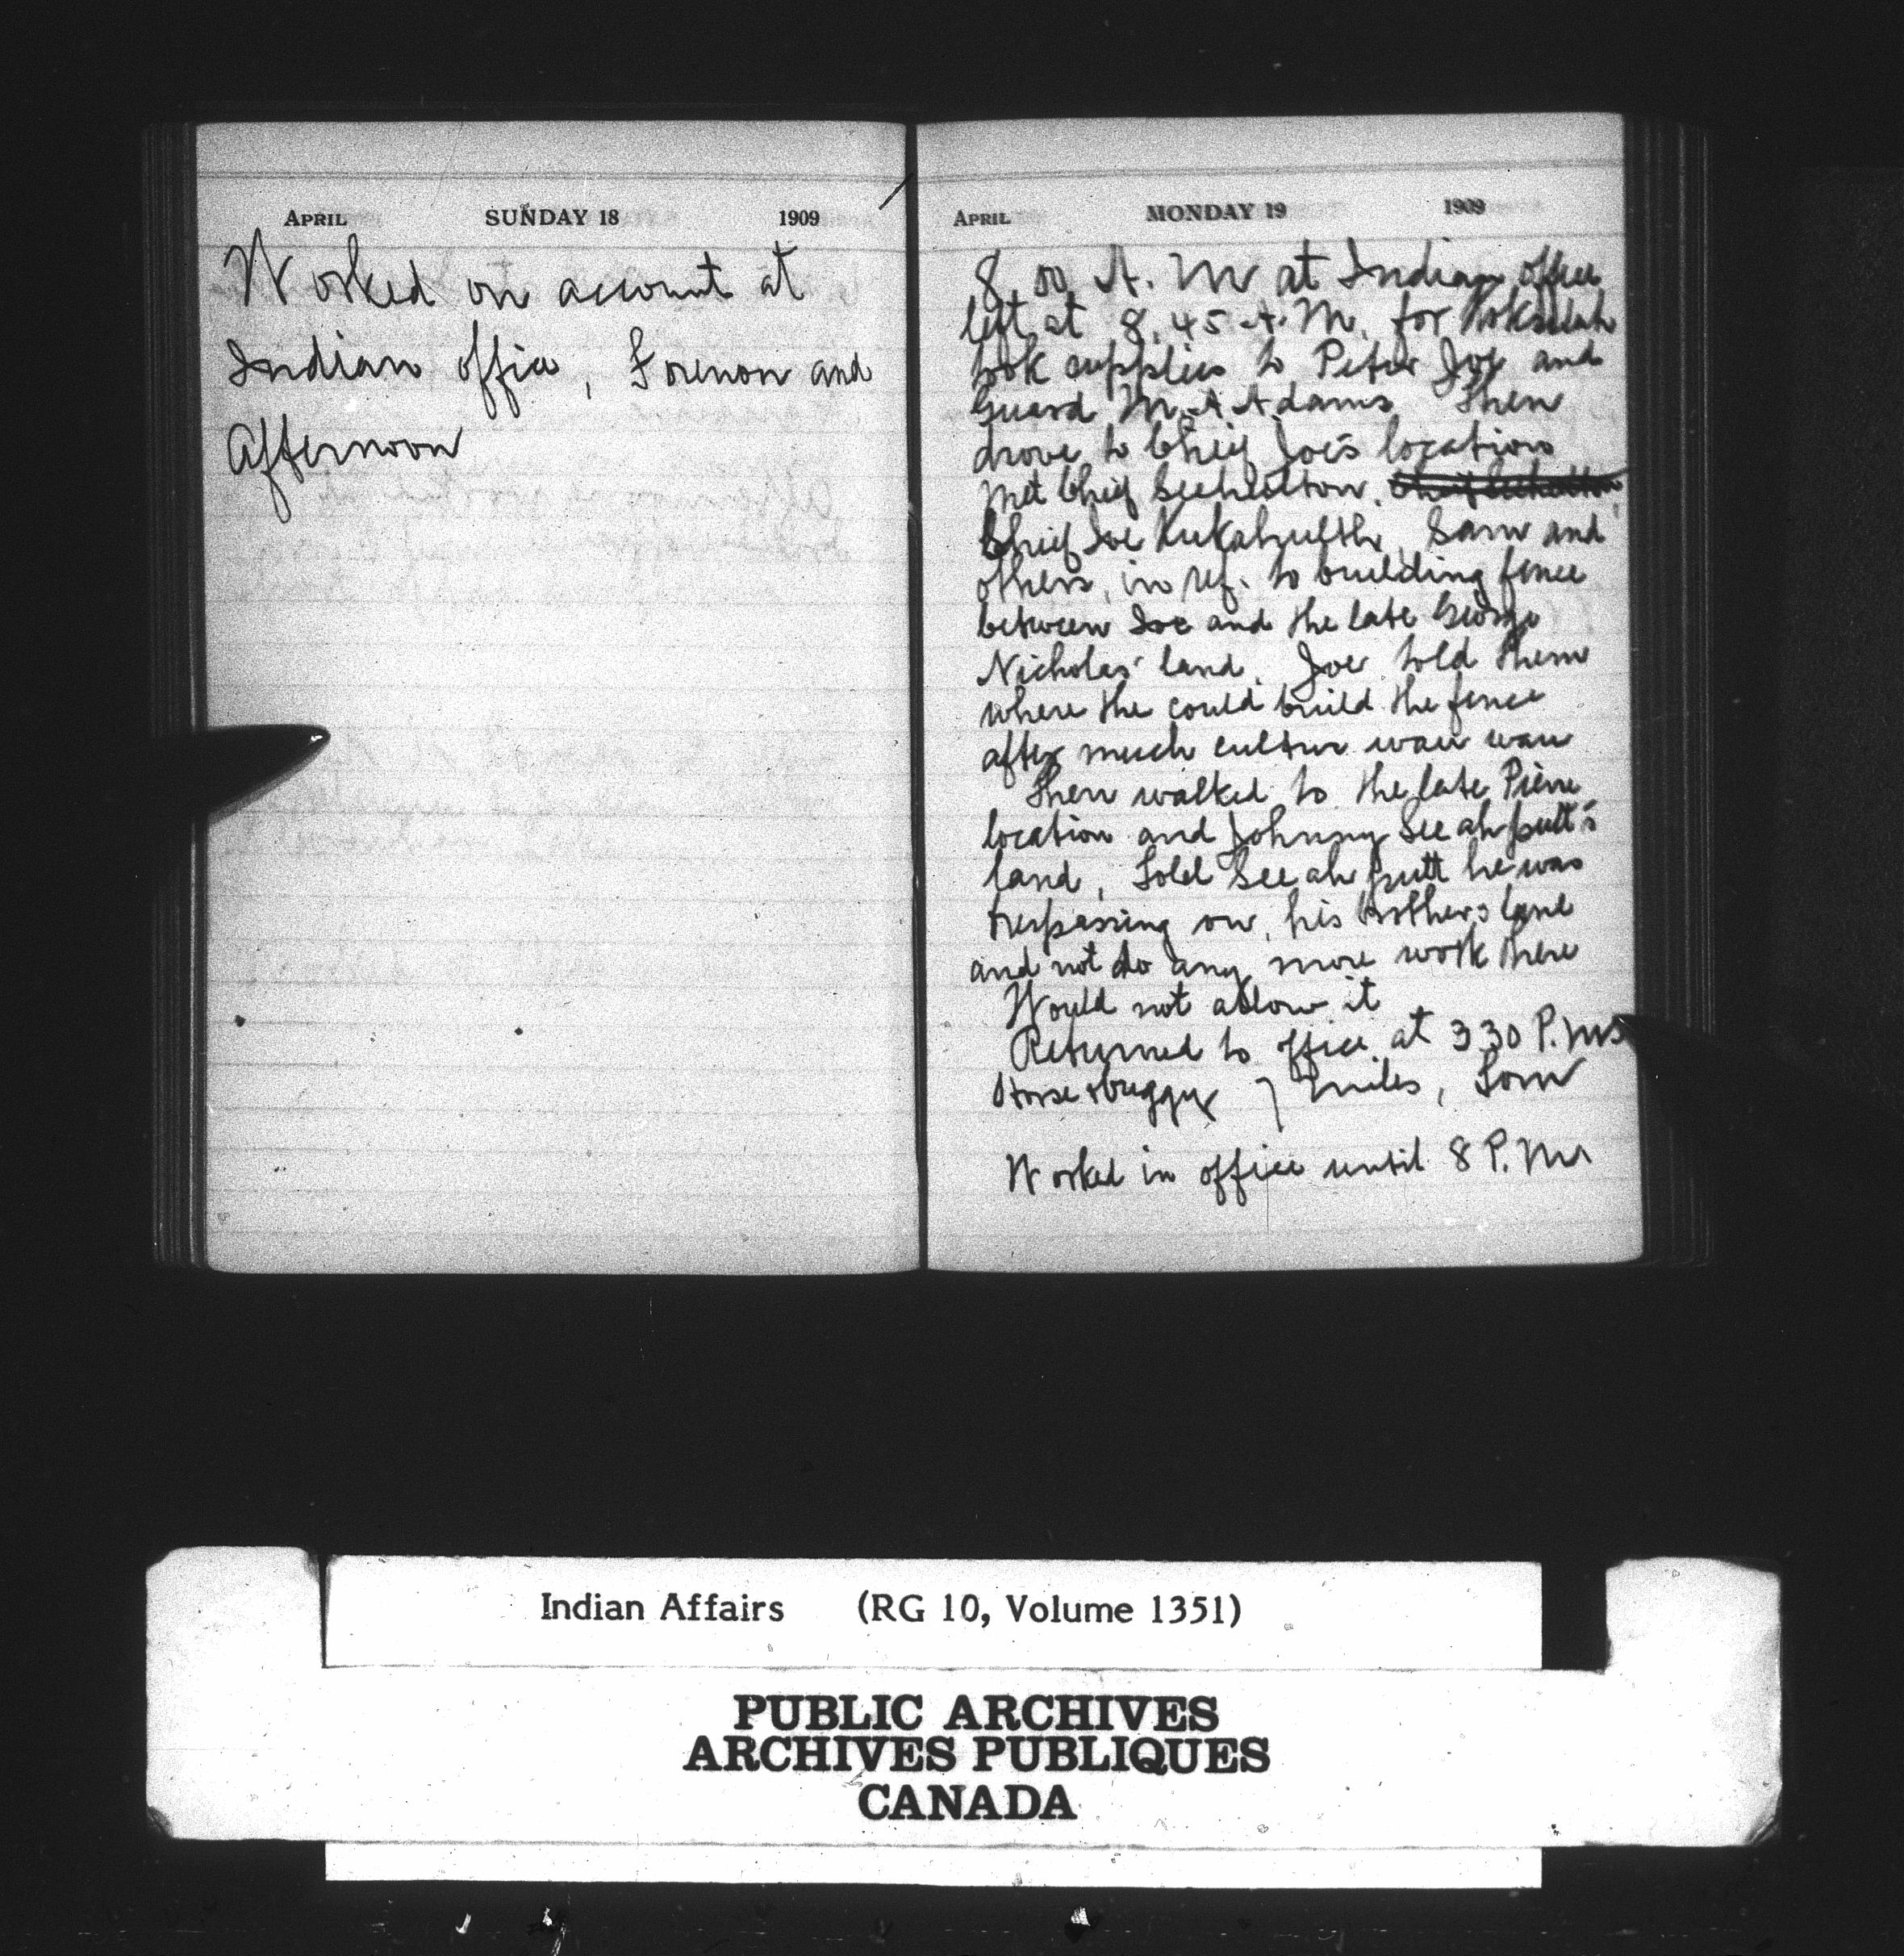 APRIL SUNDAY 18 1909
Worked on account at
Indian office, Forenoon and
Afternoon
APRIL MONDAY 19 1909
8.00 A.M at Indian office
left at 8.45 A.M. for Koksilah
took supplies to Peter Joe and
Guard M. A Adams Then
drove to Chief Joe's location
met Chief
Chief Joe Sam and
others, in ref. to building fence
between Joe and the late George
Nicholas' land. Joe told them
where the could build the fence
after much cultus wau wau
Then walked to the late Pierre
location and Johnny See ah putt's
land, Told See ah putt he was
trespassing on, his brothers land
and not do any more work there
Would not allow it
Returned to office at 3 30 P.M
Horse & buggy 7 miles, Tom
Worked in office until 8 P.M
Indian Affairs (RG 10, Volume 1351)
PUBLIC ARCHIVES
ARCHIVES PUBLIQUES
CANADA